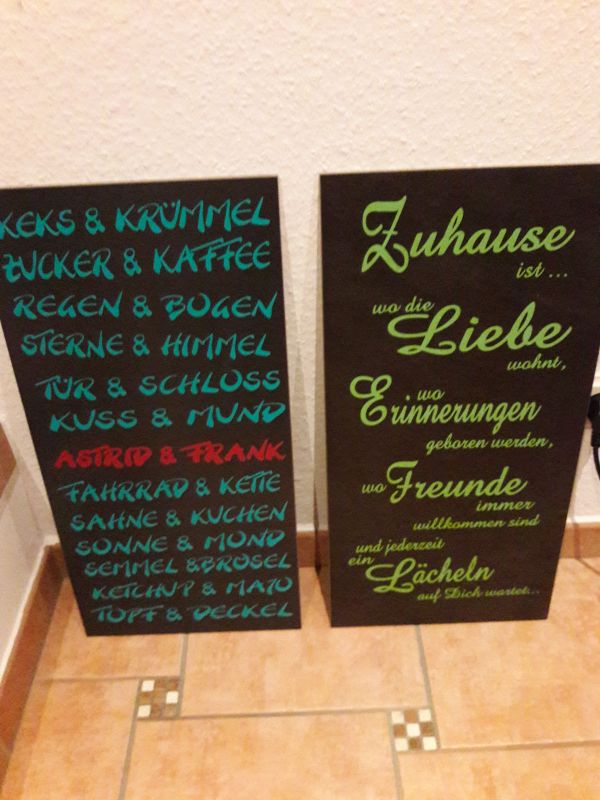 KEKS & KRÜMMEL
ZUCKER & KAFFEE
REGEN & BOGEN
STERNE & HIMMEL
TÜR & SCHLOSS
KUSS & MUND
ASTRID & FRANK
FAHRRAD & KETTE
SAHNE & KUCHEN
SONNE & MOND
SEMMEL &BRÖSEL
KETCHUP & MAYO
TOPF & DECKEL
Zuhause
ist ...
wo die
Liebe
wohnt,
wo
Erinnerungen
geboren werden,
wo Freunde
immer
willkommen sind
und jederzeit
ein Lächeln
auf Dich wartet...